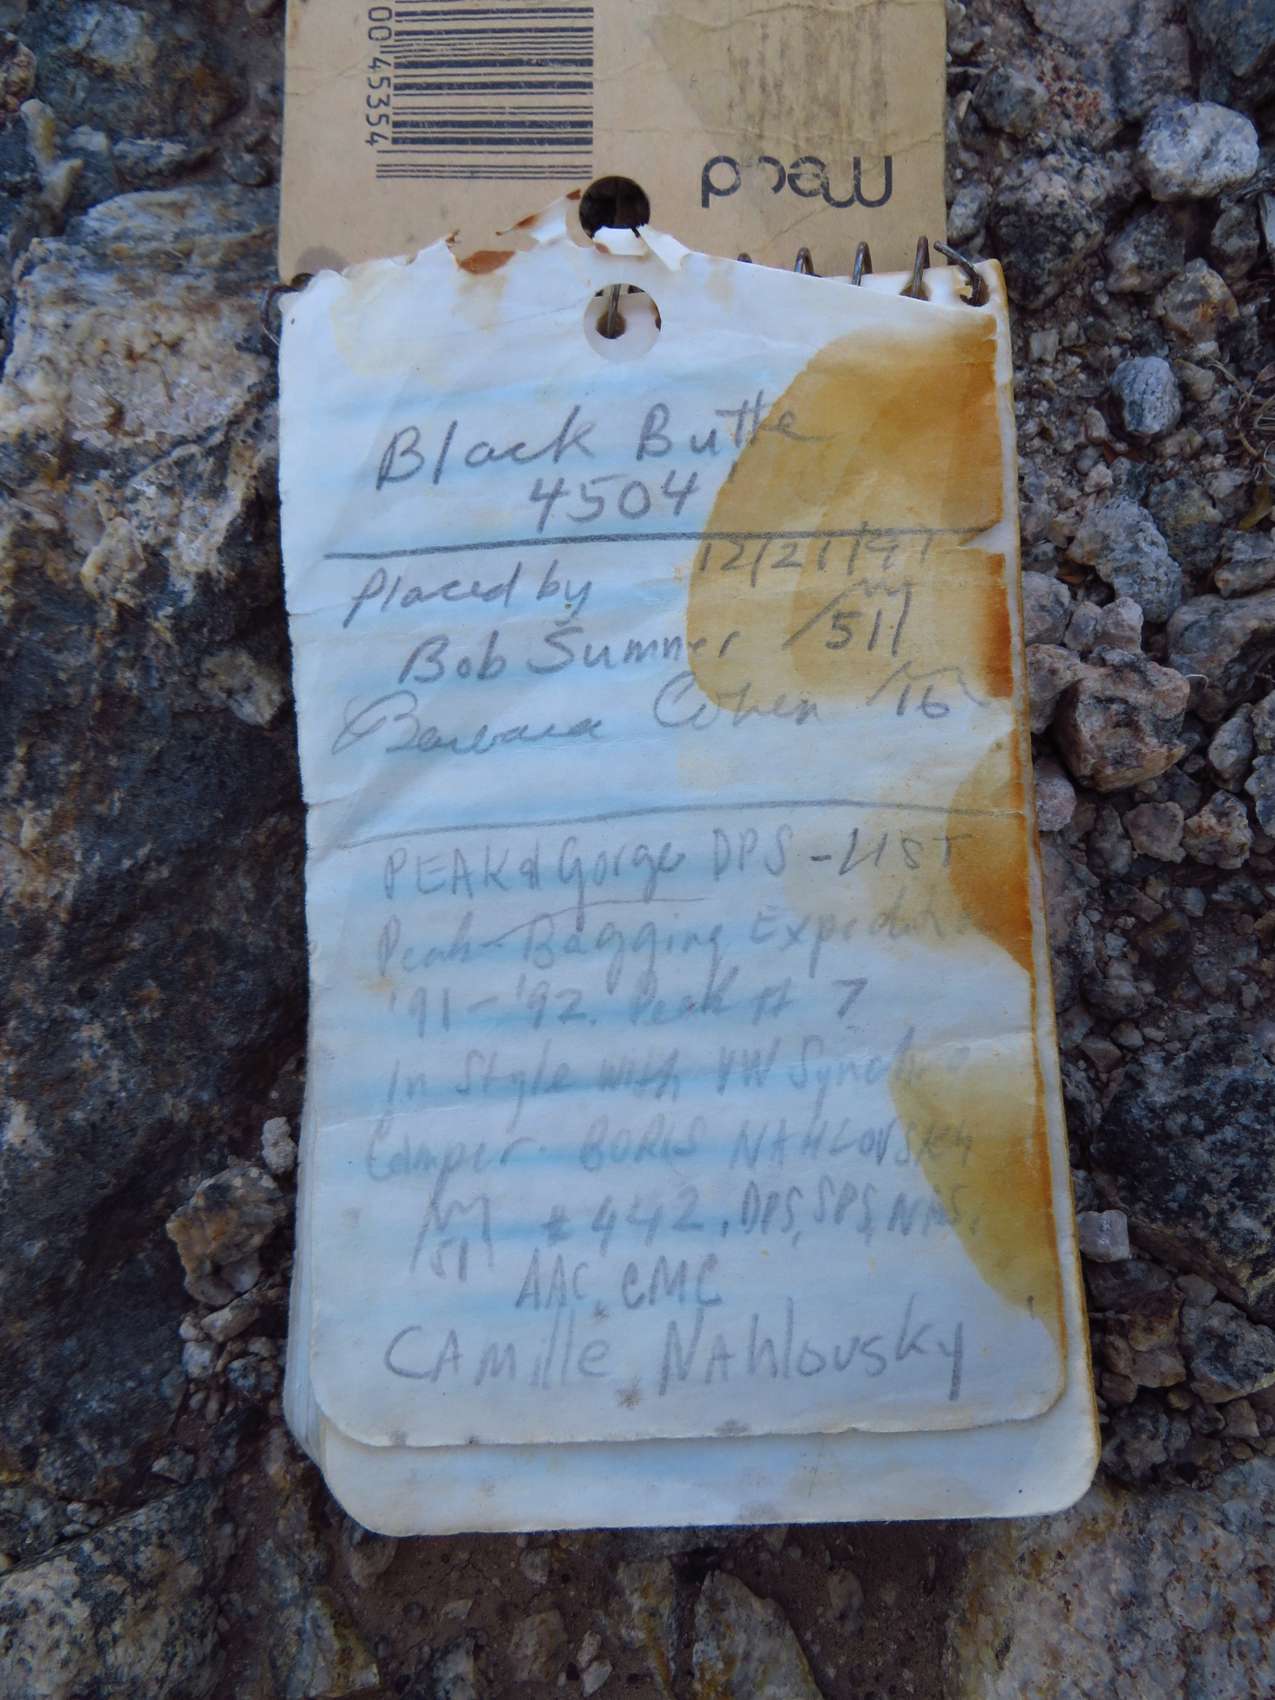 00 45354
mead
Black Butte
4504'
12/21/91
Placed by
Bob Sumner /511
Barbara Cohen /16
PEAK & Gorge DPS - LIST
Peak-Bagging Expedition
'91-'92. Peak # 7
In Style with VW Synchro
Camper. BORIS NAHLOVSKY
#442, DPS, SPS, NAS,
/51
AAC, CMC
CAMille NAhlovsky